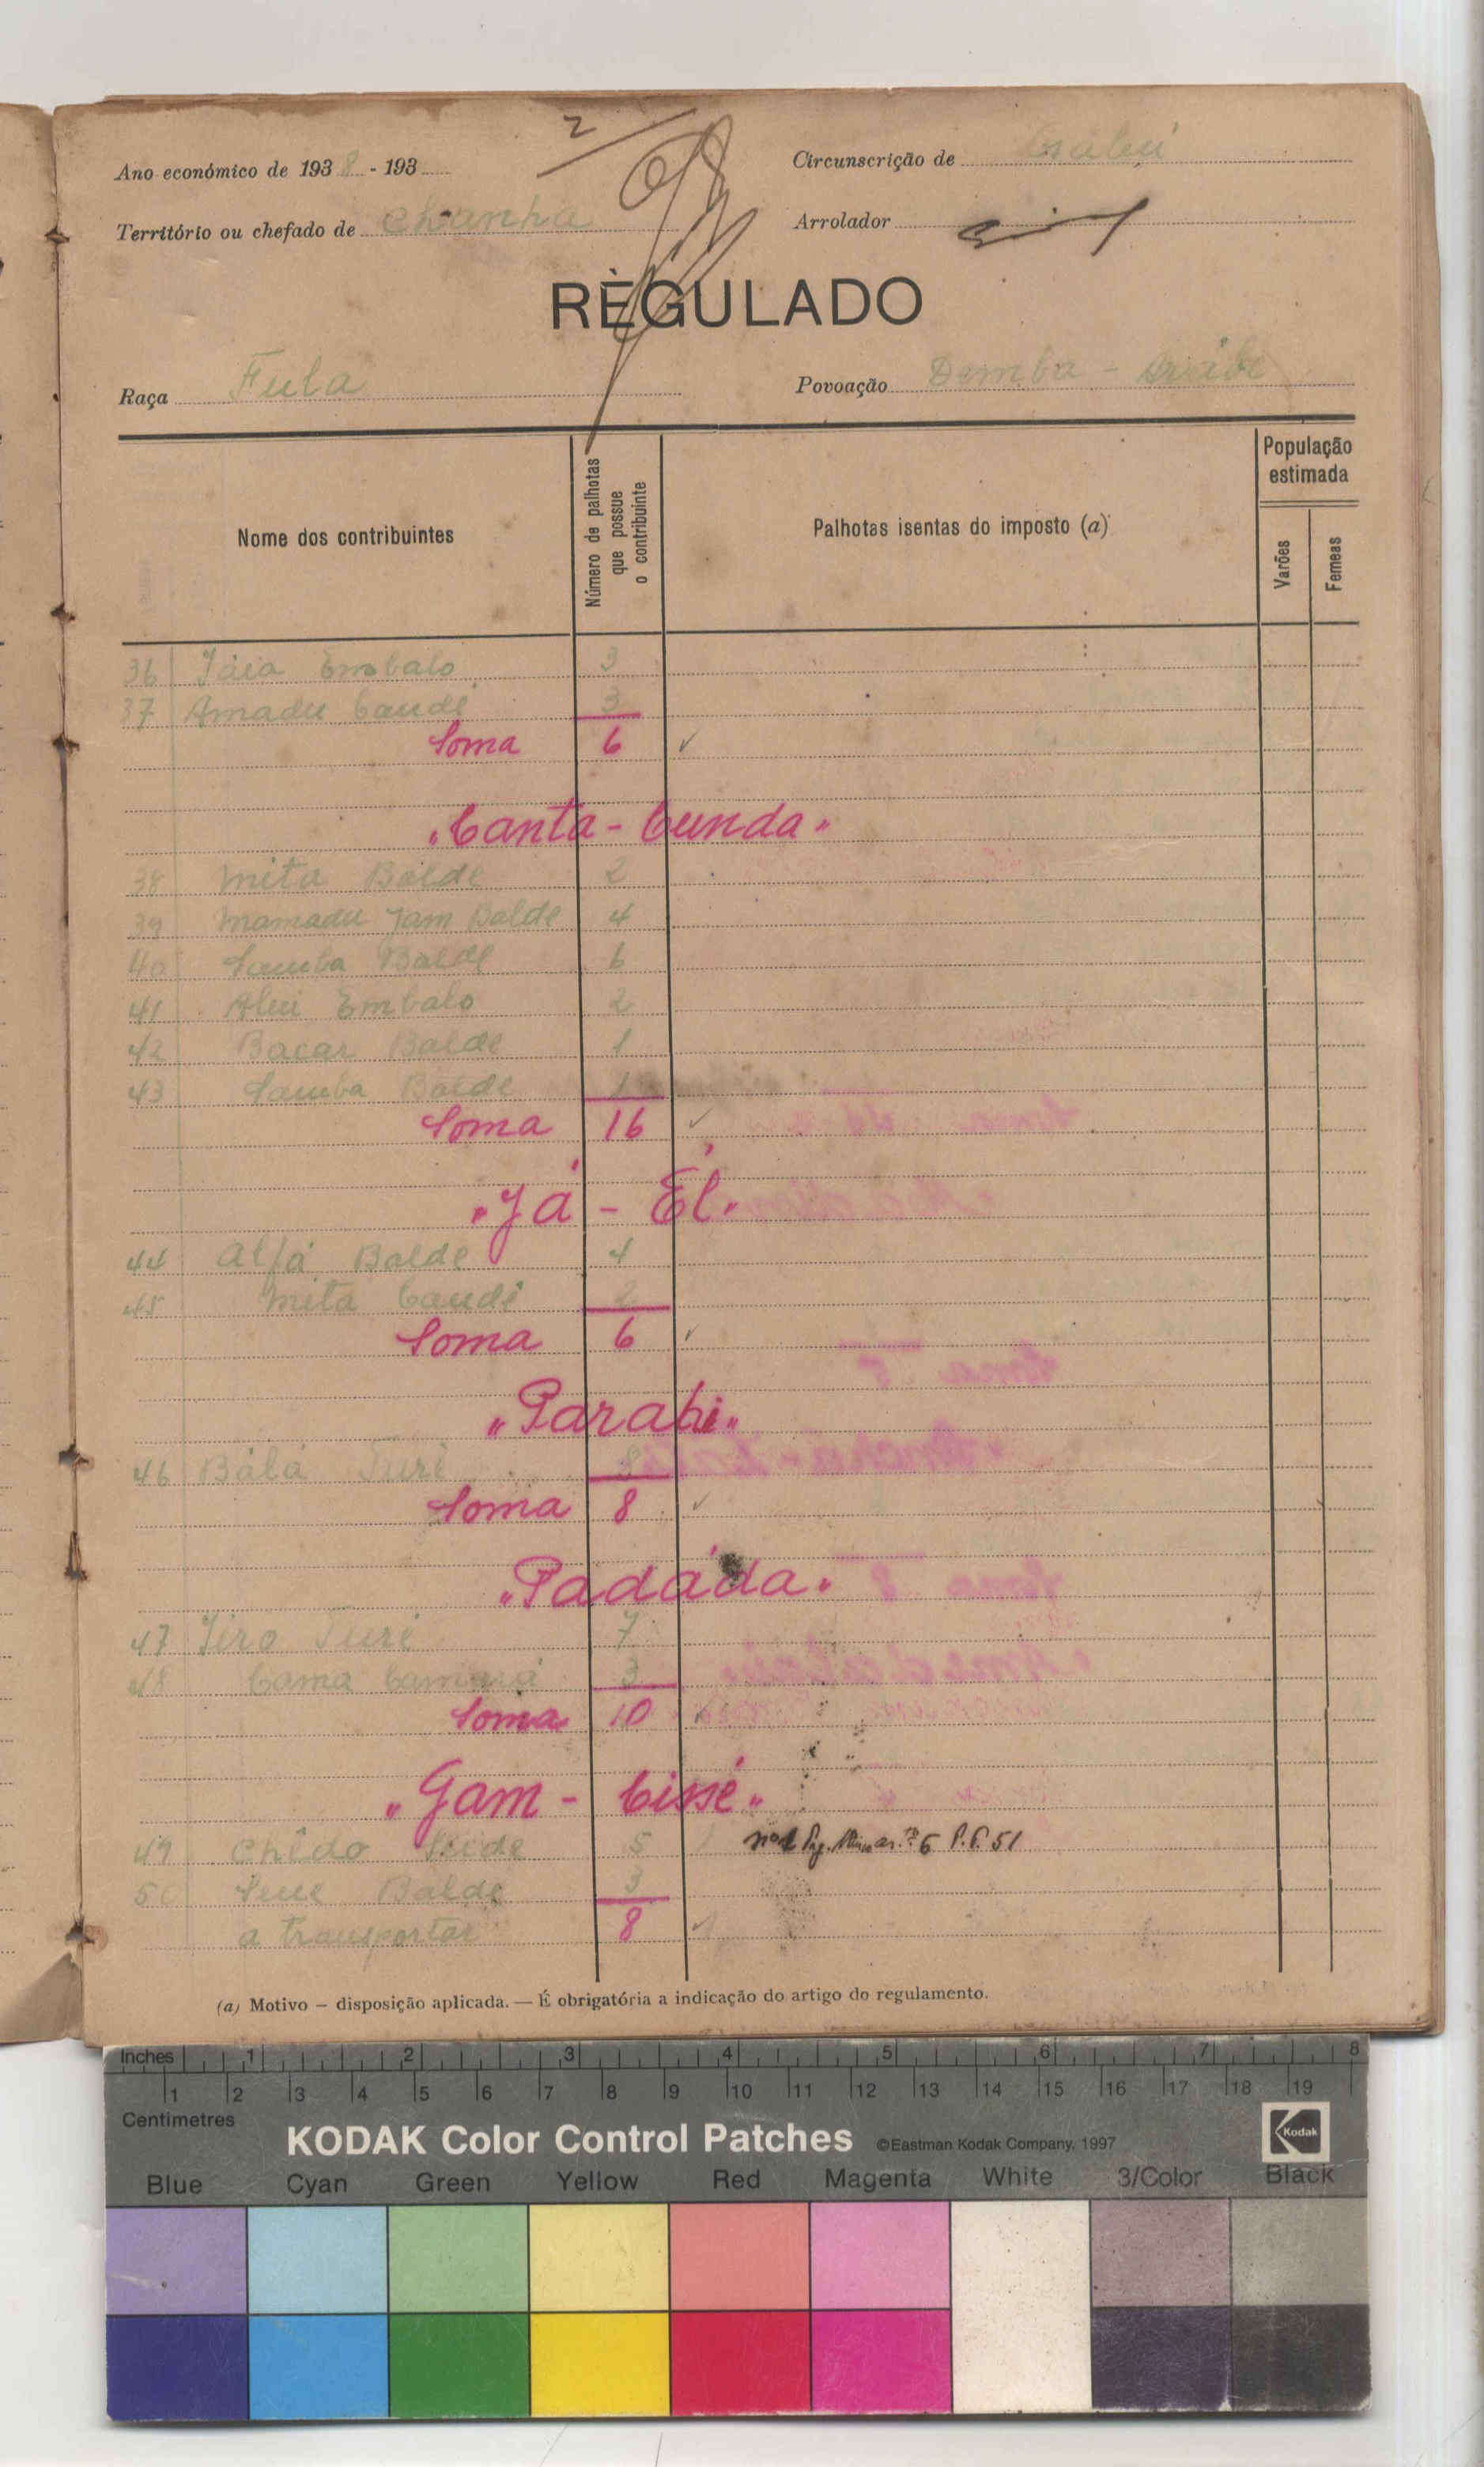 2
Ano económico de 1938 - 193
Circunscrição de Gabú
Território ou chefado de Chanha
Arrolador
RÈGULADO
Raça Fula
Povoação Demba -
Nome dos contribuintes
Número de palhotas que possue o contribuinte
Palhotas isentas do imposto (a)
População estimada
Varões
Femeas
36 Jáia Embalo 3
37 Amadu Candé 3
Soma 6
"Canta - Cunda"
38 Mita Balde 2
39 Mamadu Jam Balde 4
40 Samba Balde 6
41 Alui Embalo 2
42 Bacar Balde 1
43 Samba Balde 1
Soma 16
"Já - Él"
44 Alfá Balde 4
45 Mita Candé 2
Soma 6
"Parahi"
46 Bálá Turé 8
Soma 8
"Padáda"
47 Jiro Turé 7
48 Cama Camará 3
Soma 10
"Gam - Cissé"
49 Chêdo Seide 5
6 P.P. 51
50 Sene Balde 3
a transportar 8
(a) Motivo — disposição aplicada. — É obrigatória a indicação do artigo do regulamento.
Inches 1 2 3 4 5 6 7 8
1 2 3 4 5 6 7 8 9 10 11 12 13 14 15 16 17 18 19
Centimetres
KODAK Color Control Patches ©Eastman Kodak Company, 1997
Kodak
Blue Cyan Green Yellow Red Magenta White 3/Color Black